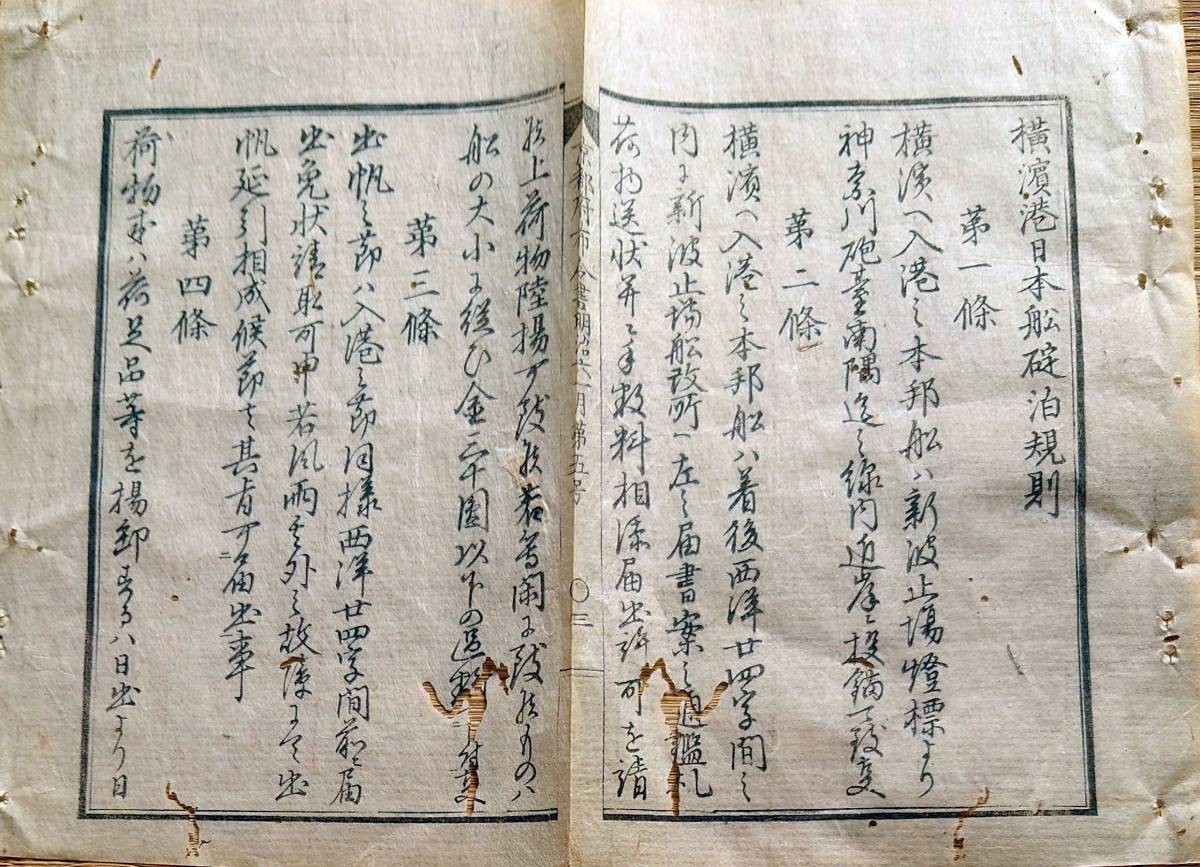 横濱港日本船碇泊規則
第一條
横濱ヘ入港之本邦船ハ新波止場燈標より
神奈川砲臺南隅迄之線内近岸ニ投錨可致事
第二條
横濱ヘ入港之本邦船ハ着後西洋廿四字間之
内に新波止場船改所ヘ左之届書案之通鑑札
荷物送状并ニ手数料相添届出許可を請
候上荷物陸揚可致候若等閑に致候ものハ
船の大小に従ひ金三十圓以下の過料可申付事
第三條
出帆之節ハ入港之節同様西洋廿四字間前ニ届
出免状請取可申若風雨其外之故障にて出
帆延引相成候節も其旨可届出事
第四條
荷物或ハ荷足品等を揚卸するハ日出より日
京都府布令書明治六一月第五号
〇三